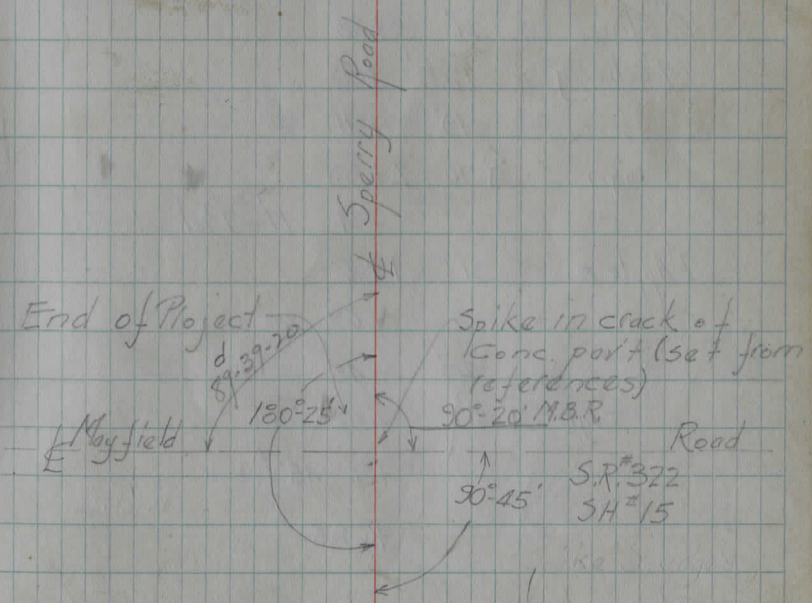 Sperry Road
℄
End of Project
Spike in crack of
Conc. pav't (set from
references)
d
89-39-20
180°-25'
90°-20' M.B.R.
℄ Mayfield Road
S.R.#322
90°-45'
SH#15